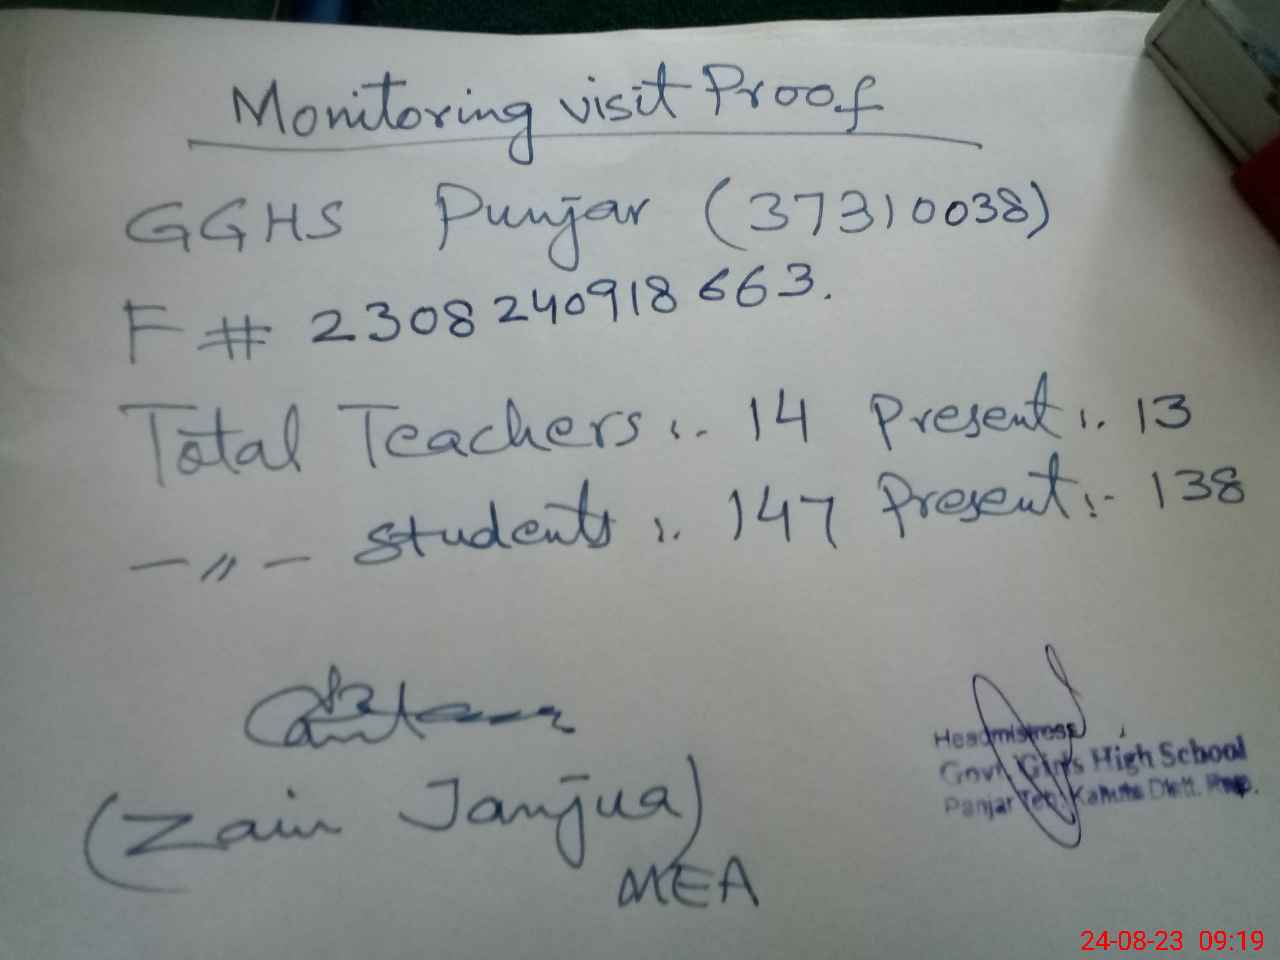 Monitoring visit Proof
GGHS Punjar (37310038)
F # 2308240918663.
Total Teachers :. 14 Present :. 13
-〃- students :. 147 Present :- 138
(Zain Janjua)
MEA
Headmistress
Govt. Girls High School
Panjar Teh. Kahuta Distt. Rwp.
24-08-23 09:19